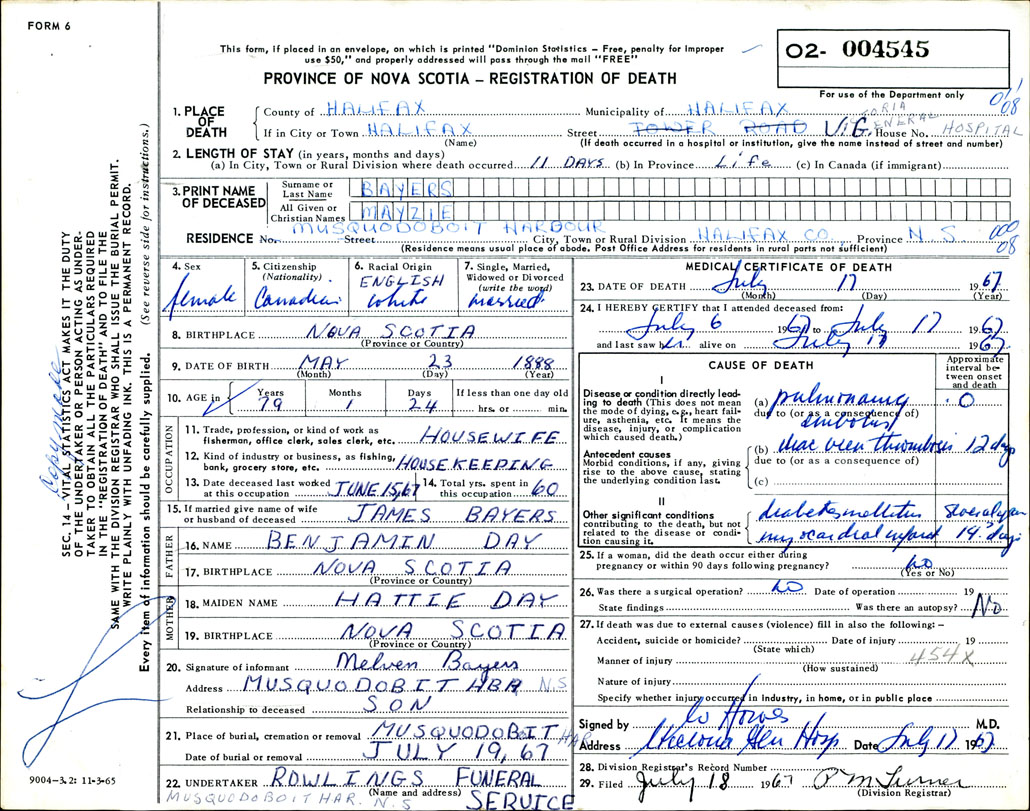 FORM 6
This form, if placed in an envelope, on which is printed "Dominion Statistics – Free, penalty for improper
use $50," and properly addressed will pass through the mail "FREE"
PROVINCE OF NOVA SCOTIA – REGISTRATION OF DEATH
02- 004545
For use of the Department only
1. PLACE OF DEATH
County of HALIFAX Municipality of HALIFAX
If in City or Town HALIFAX Street TOWER ROAD V.G. House No. HOSPITAL
(Name) (If death occurred in a hospital or institution, give the name instead of street and number)
2. LENGTH OF STAY (in years, months and days)
(a) In City, Town or Rural Division where death occurred 11 DAYS (b) In Province Life (c) In Canada (if immigrant)
3. PRINT NAME OF DECEASED
Surname or Last Name BAYERS
All Given or Christian Names MAYZIE
MUSQUODOBOIT HARBOUR
RESIDENCE No. Street City, Town or Rural Division HALIFAX CO. Province N S
(Residence means usual place of abode. Post Office Address for residents in rural parts not sufficient)
000
08
4. Sex
female
5. Citizenship (Nationality)
Canadian
6. Racial Origin
ENGLISH
white
7. Single, Married, Widowed or Divorced (write the word)
married
8. BIRTHPLACE NOVA SCOTIA
(Province or Country)
9. DATE OF BIRTH MAY 23 1888
(Month) (Day) (Year)
10. AGE in Years Months Days If less than one day old
79 1 24 hrs. or min.
OCCUPATION
11. Trade, profession, or kind of work as
fisherman, office clerk, sales clerk, etc. HOUSEWIFE
12. Kind of industry or business, as fishing,
bank, grocery store, etc. HOUSEKEEPING
13. Date deceased last worked at this occupation JUNE 15, 67 14. Total yrs. spent in this occupation 60
15. If married give name of wife
or husband of deceased JAMES BAYERS
FATHER
16. NAME BENJAMIN DAY
17. BIRTHPLACE NOVA SCOTIA
(Province or Country)
MOTHER
18. MAIDEN NAME HATTIE DAY
19. BIRTHPLACE NOVA SCOTIA
(Province or Country)
20. Signature of informant Melven Bayers
Address MUSQUODOBIT HBR N.S
Relationship to deceased SON
21. Place of burial, cremation or removal MUSQUODOBIT HAR
Date of burial or removal JULY 19, 67
22. UNDERTAKER ROWLINGS FUNERAL SERVICE
(Name and address)
MUSQUODOBOIT HAR. N.S
MEDICAL CERTIFICATE OF DEATH
23. DATE OF DEATH July 17 1967
(Month) (Day) (Year)
24. I HEREBY CERTIFY that I attended deceased from:
July 6 1967 to July 17 1967
and last saw her alive on July 17 1967
CAUSE OF DEATH
Approximate interval between onset and death
I
Disease or condition directly leading to death (This does not mean the mode of dying, e.g., heart failure, asthenia, etc. It means the disease, injury, or complication which caused death.)
(a) pulmonary embolus 0
due to (or as a consequence of)
Antecedent causes
Morbid conditions, if any, giving rise to the above cause, stating the underlying condition last.
(b) iliac vein thrombosis 12 days
due to (or as a consequence of)
(c)
II
Other significant conditions
contributing to the death, but not related to the disease or condition causing it.
diabetes mellitus
myocardial infarct 14? days
25. If a woman, did the death occur either during
pregnancy or within 90 days following pregnancy? no
(Yes or No)
26. Was there a surgical operation? no Date of operation 19
State findings Was there an autopsy? No
27. If death was due to external causes (violence) fill in also the following: –
Accident, suicide or homicide? Date of injury 19
(State which)
Manner of injury 454X
(How sustained)
Nature of injury
Specify whether injury occurred in industry, in home, or in public place
Signed by M.D.
Address Victoria Gen Hosp Date July 17 1967
28. Division Registrar's Record Number
29. Filed July 18 1967 P M Turner
(Division Registrar)
SEC. 14 – VITAL STATISTICS ACT MAKES IT THE DUTY
OF THE UNDERTAKER OR PERSON ACTING AS UNDER-
TAKER TO OBTAIN ALL THE PARTICULARS REQUIRED
IN THE "REGISTRATION OF DEATH" AND TO FILE THE
SAME WITH THE DIVISION REGISTRAR WHO SHALL ISSUE THE BURIAL PERMIT.
WRITE PLAINLY WITH UNFADING INK. THIS IS A PERMANENT RECORD.
Every item of information should be carefully supplied. (See reverse side for instructions.)
9004–3.2: 11-3-65